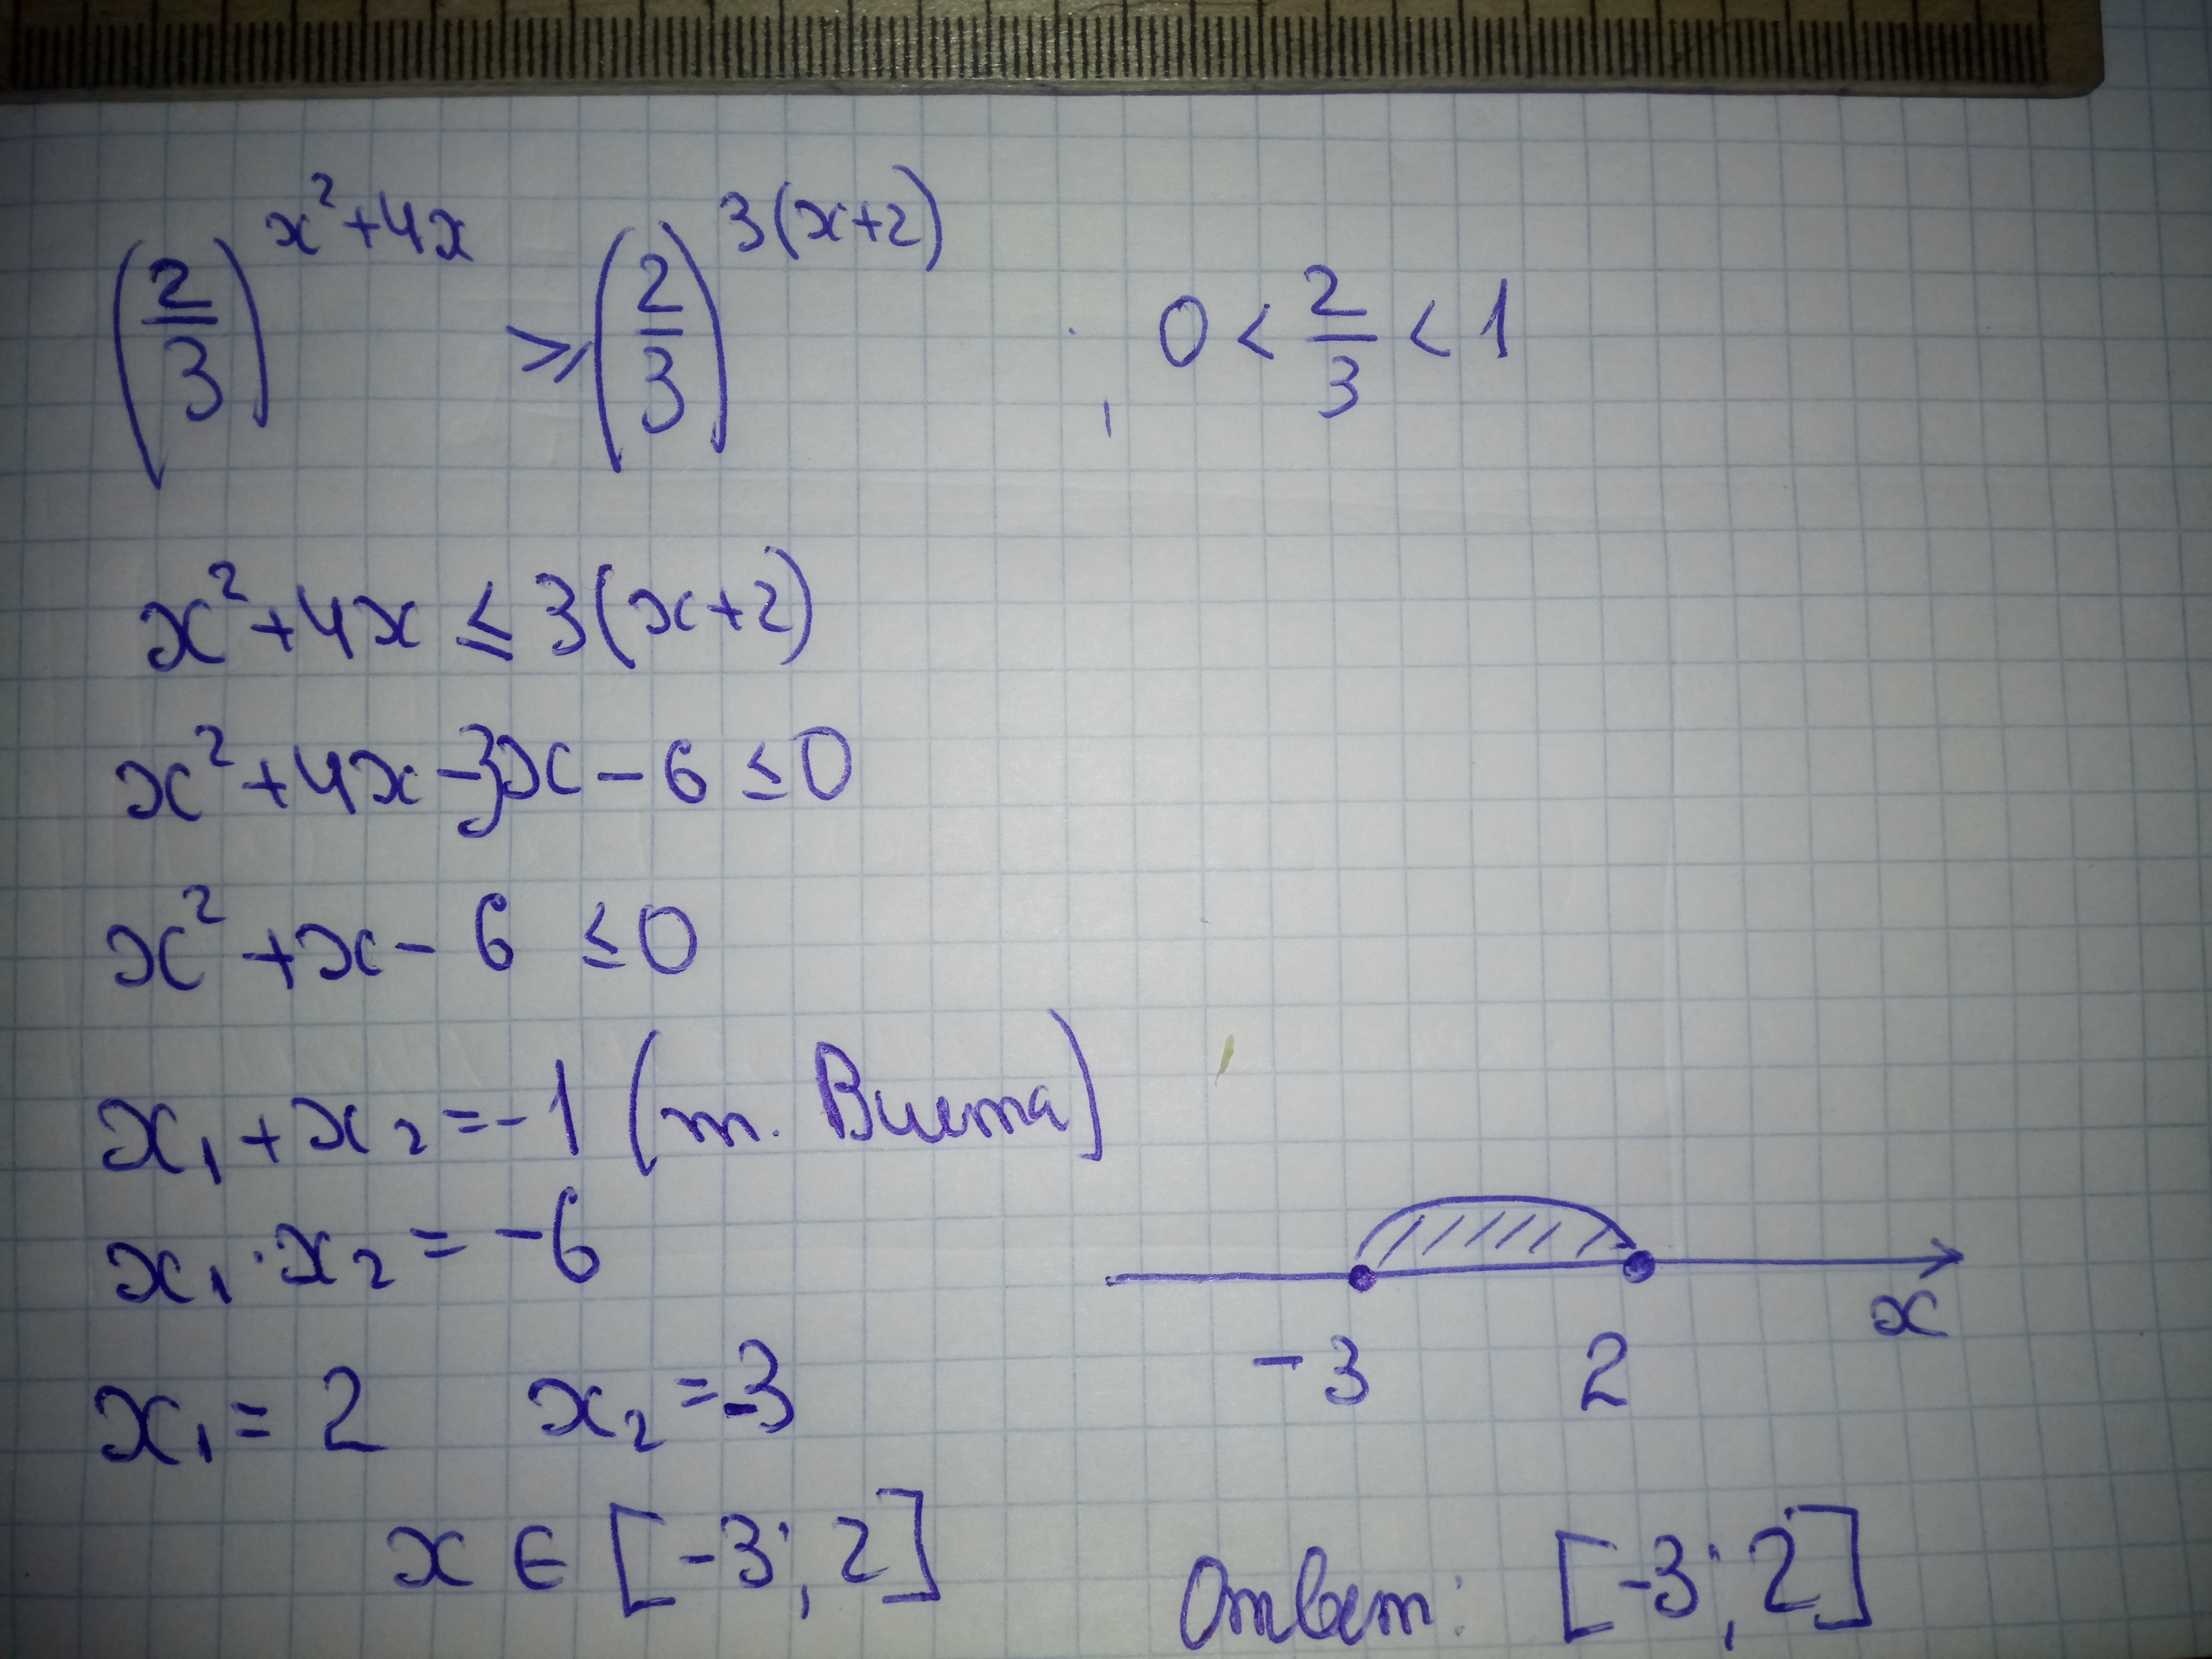 (2/3)^(x²+4x) ⩾ (2/3)^(3(x+2)) , 0 < 2/3 < 1
x²+4x ≤ 3(x+2)
x²+4x-3x-6 ≤ 0
x²+x-6 ≤ 0
x₁+x₂=-1 (т. Виета)
x₁·x₂=-6
x₁=2 x₂=-3
-3 2 x
x ∈ [-3; 2]
Ответ: [-3; 2]